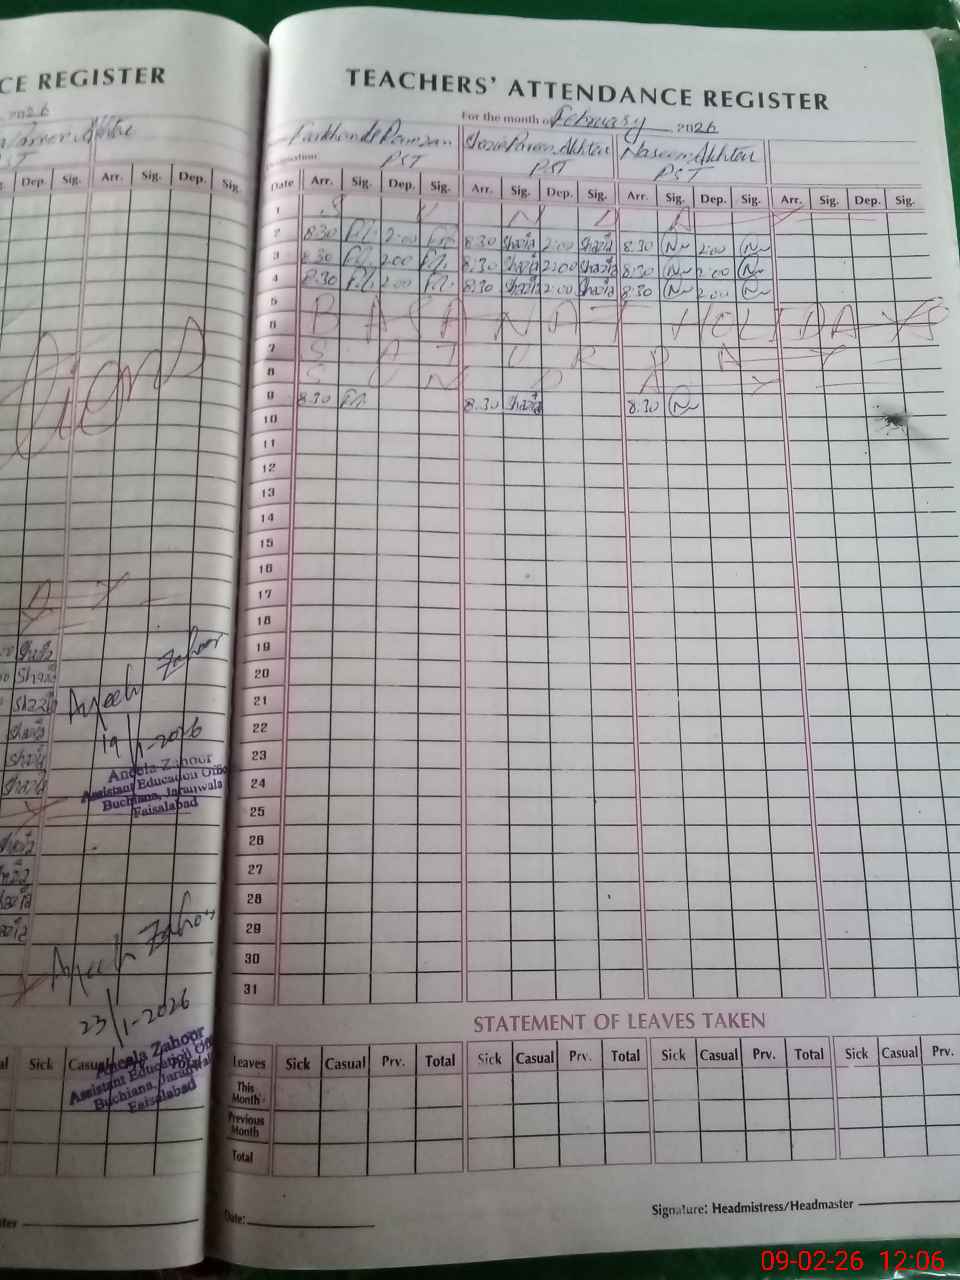 CE REGISTER
2026
Akhtar
PST
Dep. Sig. Arr. Sig. Dep. Sig.
Shazia
Shazia
Shazia
Shazia
Shazia
Shazia
Aneela Zahoor
19/1-2026
Aneela Zahoor
Assistant Education Offi
Buchiana, Jaranwala
Faisalabad
Shazia
Shazia
Shazia
Shazia
Aneela Zahoor
23/1-2026
Aneela Zahoor
Assistant Education Off
Buchiana, Jaranwala
Faisalabad
Sick Casual
TEACHERS' ATTENDANCE REGISTER
For the month of February 2026
Farkhanda Ramzan Shazia Parveen Akhtar Naseem Akhtar
PST PST PST
Date Arr. Sig. Dep. Sig. Arr. Sig. Dep. Sig. Arr. Sig. Dep. Sig. Arr. Sig. Dep. Sig.
1 S U N D A Y
2 8:30 2:00 8:30 Shazia 2:00 Shazia 8:30 2:00
3 8:30 2:00 8:30 Shazia 2:00 Shazia 8:30 2:00
4 8:30 2:00 8:30 Shazia 2:00 Shazia 8:30 2:00
5
6 BASANAT HOLIDAYS
7 S A T U R D A Y
8 S U N D A Y
9 8:30 8:30 Shazia 8:30
10
11
12
13
14
15
16
17
18
19
20
21
22
23
24
25
26
27
28
29
30
31
STATEMENT OF LEAVES TAKEN
Leaves Sick Casual Prv. Total Sick Casual Prv. Total Sick Casual Prv. Total Sick Casual Prv.
This Month
Previous Month
Total
Date:
Signature: Headmistress/Headmaster
09-02-26 12:06